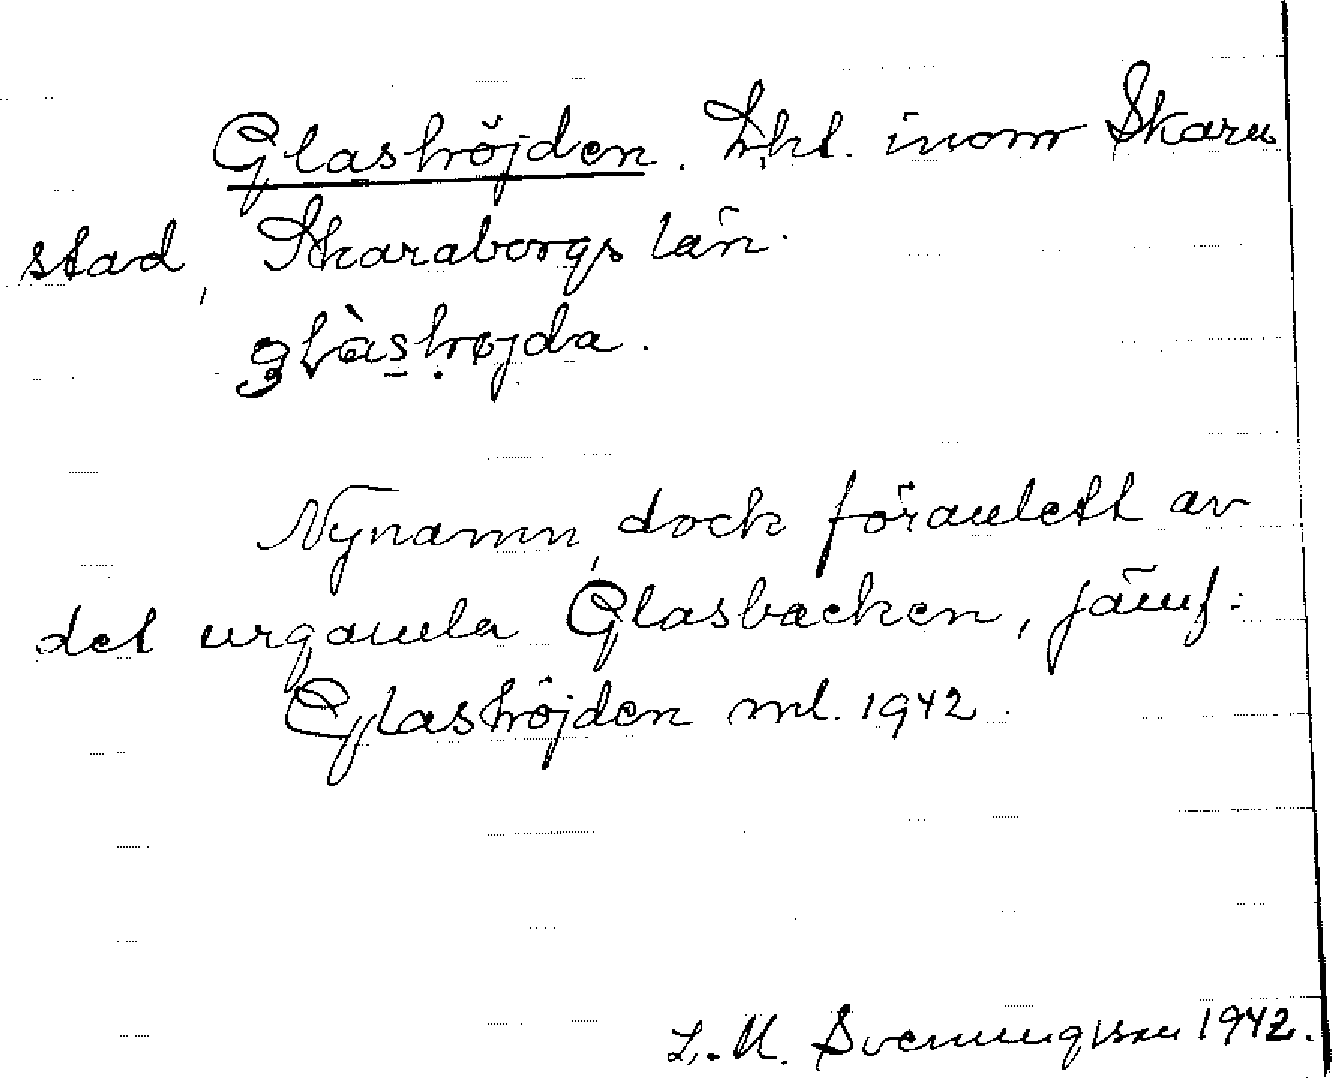 Glashöjden. Lkl. inom Skara
stad, Skaraborgs län.
glàshøjda.
Nynamn, dock föranlett av
det urgamla Glasbacken, jämf:
Glashöjden ml. 1942.
L. M. Svenungsson 1942.